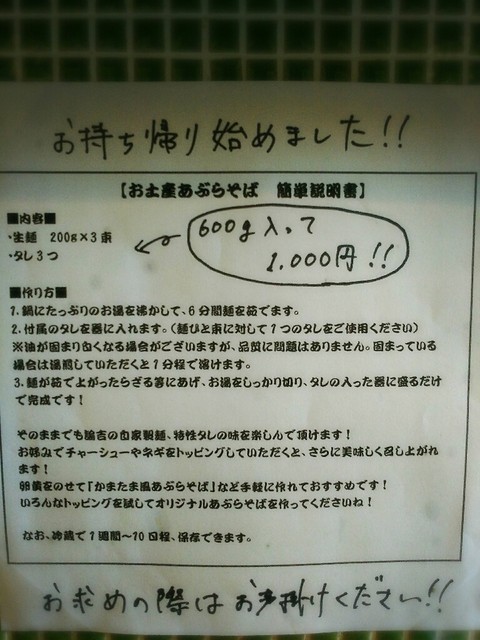 お持ち帰り始めました!!
【お土産あぶらそば 簡単説明書】
■内容■
・生麺 200g×3束
・タレ3つ
600g入って
1,000円!!
■作り方■
1.鍋にたっぷりのお湯を沸かして、6分間麺を茹でます。
2.付属のタレを器に入れます。(麺ひと束に対して1つのタレをご使用ください)
※油が固まり白くなる場合がございますが、品質に問題はありません。固まっている
場合は湯煎していただくと1分程で溶けます。
3.麺が茹で上がったらざる等にあげ、お湯をしっかり切り、タレの入った器に盛るだけ
で完成です!
そのままでも諭吉の自家製麺、特性タレの味を楽しんで頂けます!
お好みでチャーシューやネギをトッピングしていただくと、さらに美味しく召し上がれ
ます!
卵黄をのせて「かまたま風あぶらそば」など手軽に作れておすすめです!
いろんなトッピングを試してオリジナルあぶらそばを作ってくださいね!
なお、冷蔵で1週間~10日程、保存できます。
お求めの際はお声掛けください!!